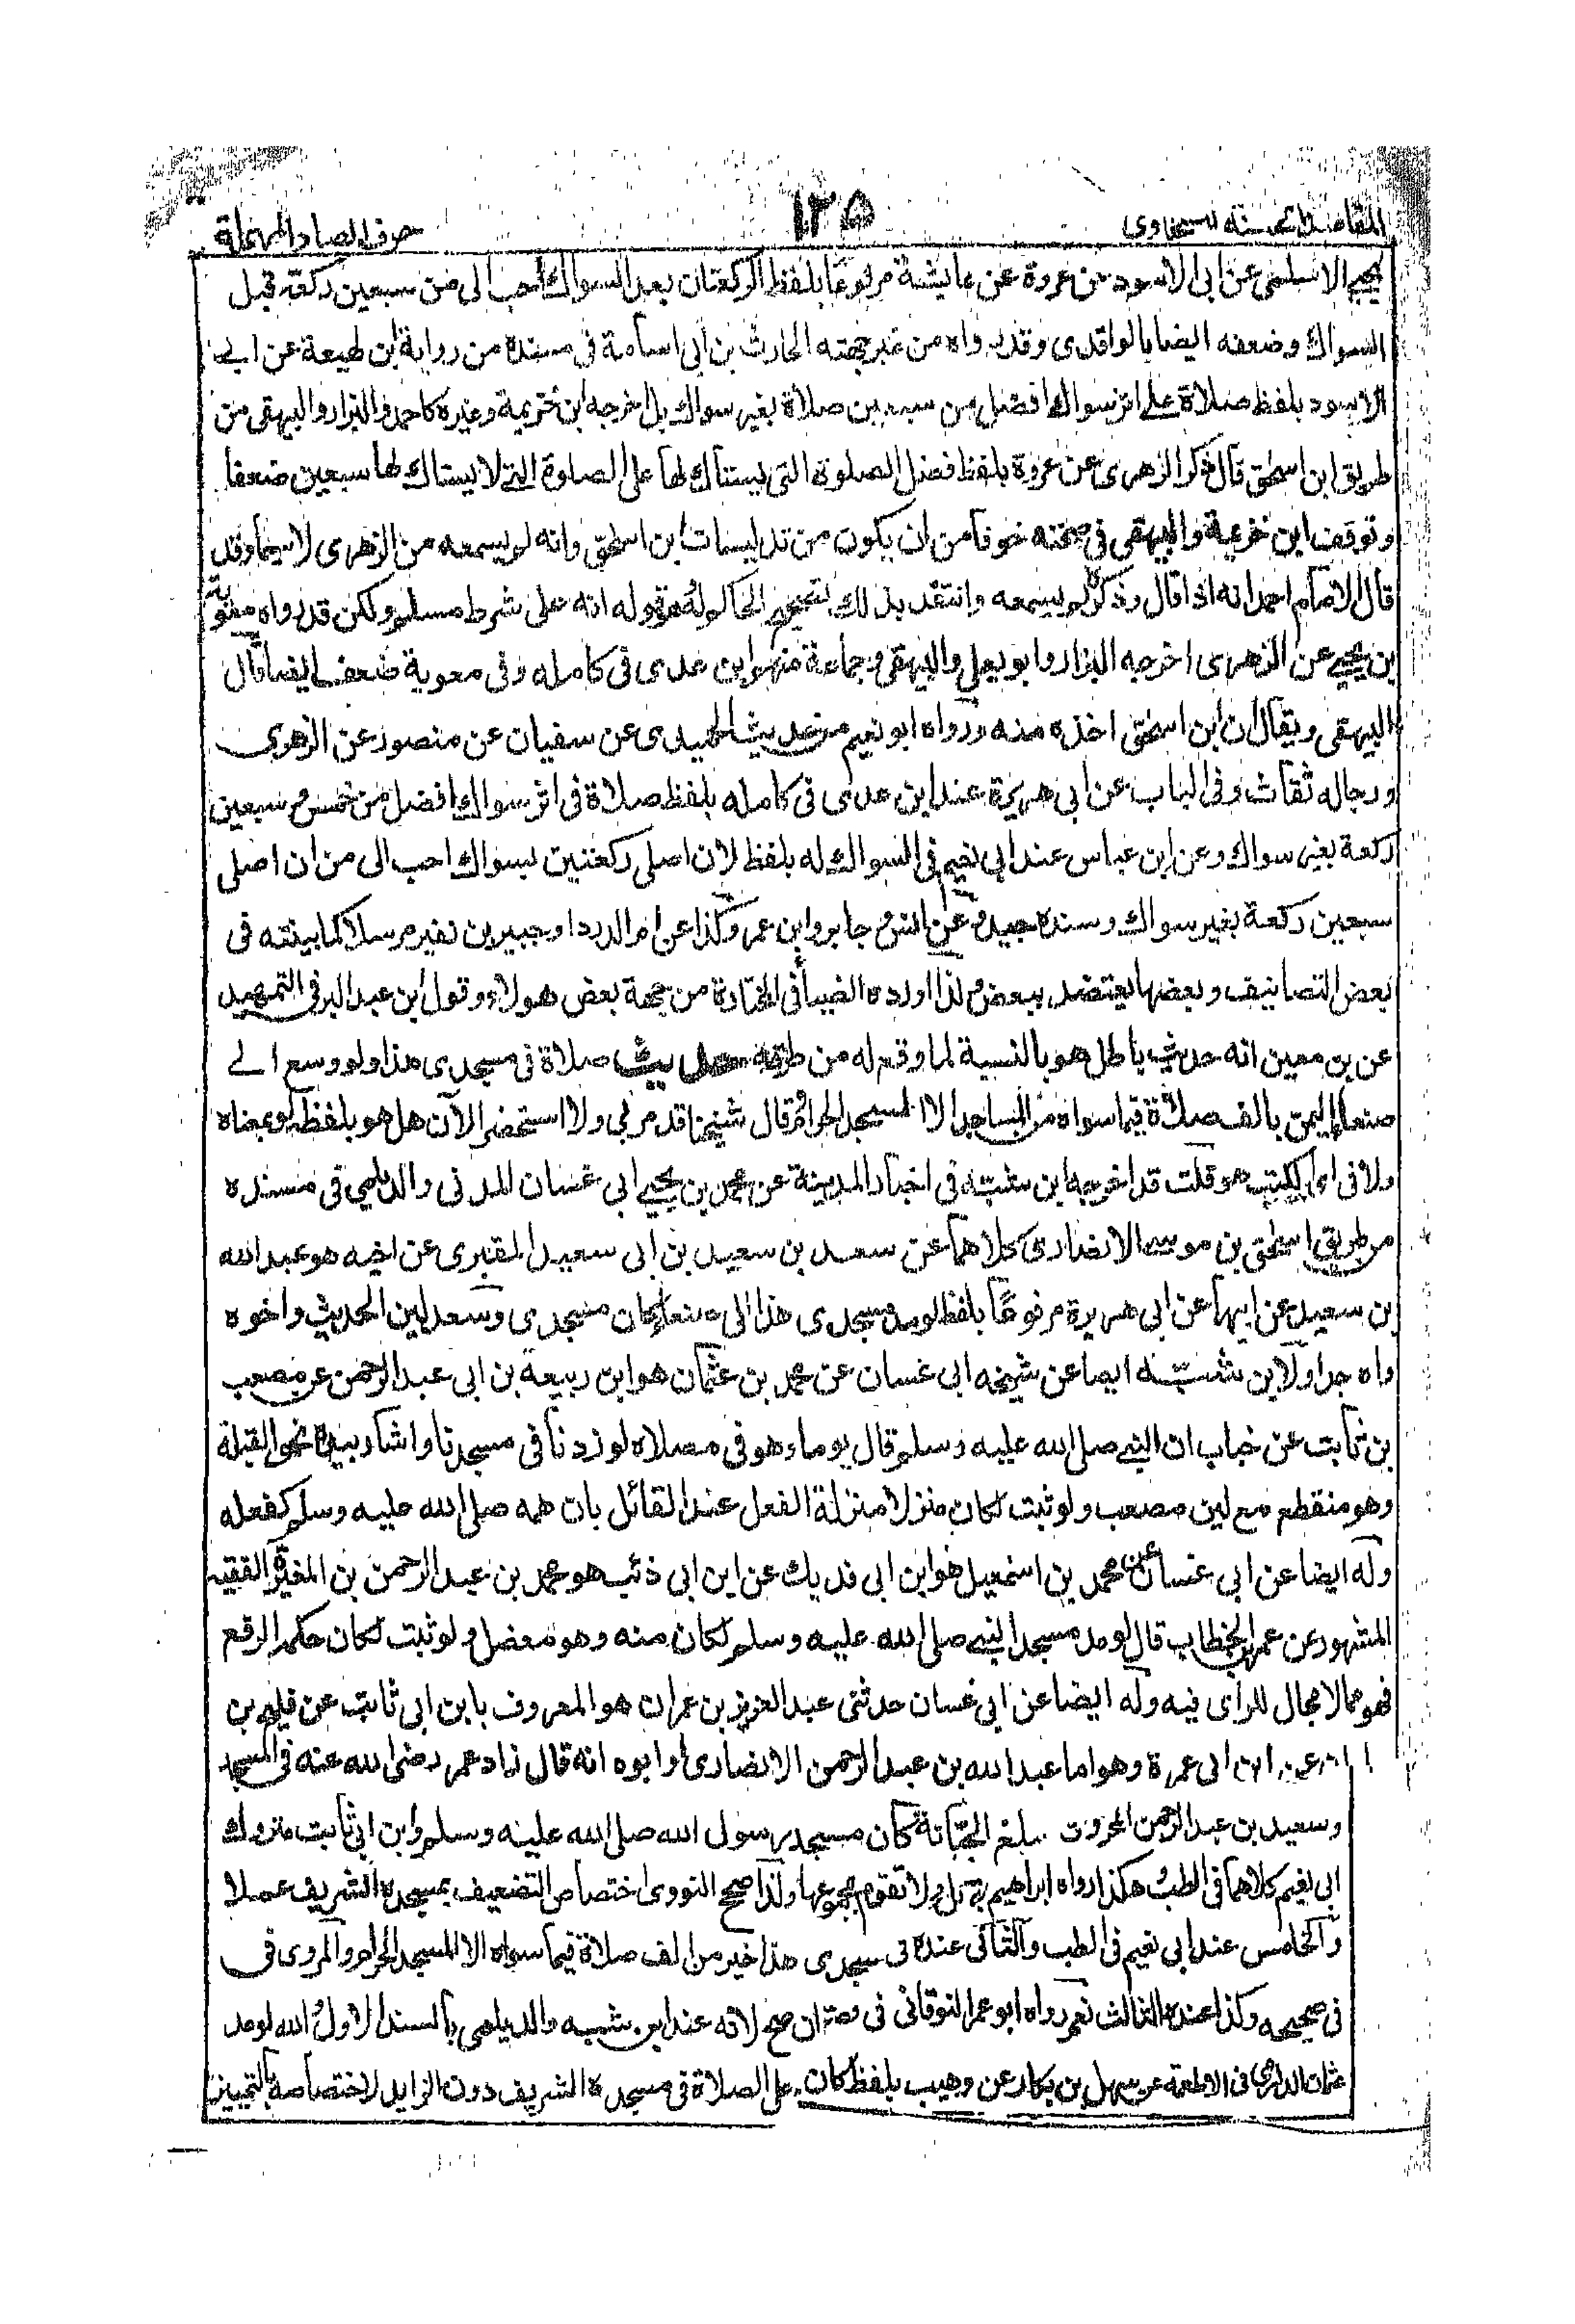 المقاصد الحسنة للسخاوى
١٣٥
حرف الصاد المهملة
يحيى الاسلمى عن ابى الاسود عن عروة عن عايشة مرفوعا بلفظ الركعتان بعد السواك احب الى من سبعين ركعة قبل
السواك وضعفه ايضا بالواقدى وقد رواه من غير جهته الحارث بن ابى اسامة فى مسنده من رواية ابن لهيعة عن ابى
الاسود بلفظ صلاة على اثر سواك افضل من سبعين صلاة بغير سواك بل اخرجه ابن خزيمة وغيره كاحمد والبزار والبيهقى من
طريق ابن اسحق قال ذكر الزهرى عن عروة بلفظ فضل الصلوة التى يستاك لها على الصلوة التى لا يستاك لها سبعين ضعفا
وتوقف ابن خزيمة والبيهقى فى صحته خوفا من ان يكون من تدليسات ابن اسحق وانه لم يسمعه من الزهرى لا سيما وقد
قال الامام احمد انه اذا قال وذكر لم يسمعه وانتقد بذلك تصحيح الحاكم له وقوله انه على شرط مسلم ولكن قد رواه معوية
بن يحيى عن الزهرى اخرجه البزار وابو يعلى والبيهقى وجماعة منهم ابن عدى فى كامله وفى معوية ضعف ايضا قال
البيهقى ويقال ان ابن اسحق اخذه منه ورواه ابو نعيم من حديث الحميدى عن سفيان عن منصور عن الزهرى
ورجاله ثقات وفى الباب عن ابى هريرة عند ابن عدى فى كامله بلفظ صلاة فى اثر سواك افضل من خمس وسبعين
ركعة بغير سواك وعن ابن عباس عند ابى نعيم فى السواك له بلفظ لان اصلى ركعتين بسواك احب الى من ان اصلى
سبعين ركعة بغير سواك وسنده جيد وعن انس وجابر وابن عمر وكذا عن ام الدردا وجبير بن نفير مرسلا كما بينته فى
بعض التصانيف وبعضها يعتضد ببعض ولذا اورده الضيا فى المختارة من جهة بعض هولاء وقول ابن عبد البر فى التمهيد
عن بن معين انه حديث باطل هو بالنسبة لما وقع له من طرقه حديث صلاة فى مسجدى هذا ولو وسع الى
صنعا اليمن بالف صلاة فيما سواه من المساجد الا المسجد الحرام قال شيخنا قد مر لى ولا استحضر الآن هل هو بلفظه او بمعناه
ولا فى اى الكتب هو قلت قد اخرجه ابن شبة فى اخبار المدينة عن محمد بن يحيى ابى غسان المدنى والديلمى فى مسنده
من طريق اسحق بن موسى الانصارى كلاهما عن سعد بن سعيد بن ابى سعيد المقبرى عن اخيه هو عبد الله
بن سعيد عن ابيهما عن ابى هريرة مرفوعًا بلفظ لو مد مسجدى هذا الى صنعا لكان مسجدى وسعد لين الحديث واخوه
واه جدا ولابن شبة ايضا عن شيخه ابى غسان عن محمد بن عثمان هو ابن ربيعة بن ابى عبد الرحمن عن مصعب
بن ثابت عن خباب ان النبى صلى الله عليه وسلم قال يوما وهو فى مصلاه لو زدنا فى مسجدنا واشار بيده نحو القبلة
وهو منقطع مع لين مصعب ولو ثبت لكان منزلا منزلة الفعل عند القائل بان همه صلى الله عليه وسلم كفعله
وله ايضا عن ابى غسان عن محمد بن اسمعيل هو ابن ابى فديك عن ابن ابى ذئب هو محمد بن عبد الرحمن بن المغيرة الفقيه
المشهور عن عمر بن الخطاب قال لو مد مسجد النبى صلى الله عليه وسلم لكان منه وهو معضل ولو ثبت لكان حكمه الرفع
فهو مما لا مجال للرأى فيه وله ايضا عن ابى غسان حدثنى عبد العزيز بن عمران هو المعروف بابن ابى ثابت عن فليح بن
عن ابن ابى عمرة وهو اما عبد الله بن عبد الرحمن الانصارى او ابوه انه قال زاد عمر رضى الله عنه فى المسجد
وسعيد بن عبد الرحمن المخزوت بلغ الجبّانة كان مسجد رسول الله صلى الله عليه وسلم وابن ابى ثابت متروك
ابى نعيم كلاهما فى الطب هكذا رواه ابراهيم ولا تقوم بمجموعها ولذا صحح النووى اختصاص التضعيف بمسجده الشريف عملا
والخامس عند ابى نعيم فى الطب والثانى عنده فى مسجدى هذا خير من الف صلاة فيما سواه الا المسجد الحرام والمروى فى
فى صحيحه وكذا عنده الثالث نعم رواه ابو عمر النوقانى فى ان صح لانه عند ابن شبه والديلمى بالسند الاول الله لو مد
عثمان الدارمى فى الاطعمة عن سهل بن بكار عن وهيب بلفظ كان على الصلاة فى مسجده الشريف دون الزايد لاختصاصه بالتمييز